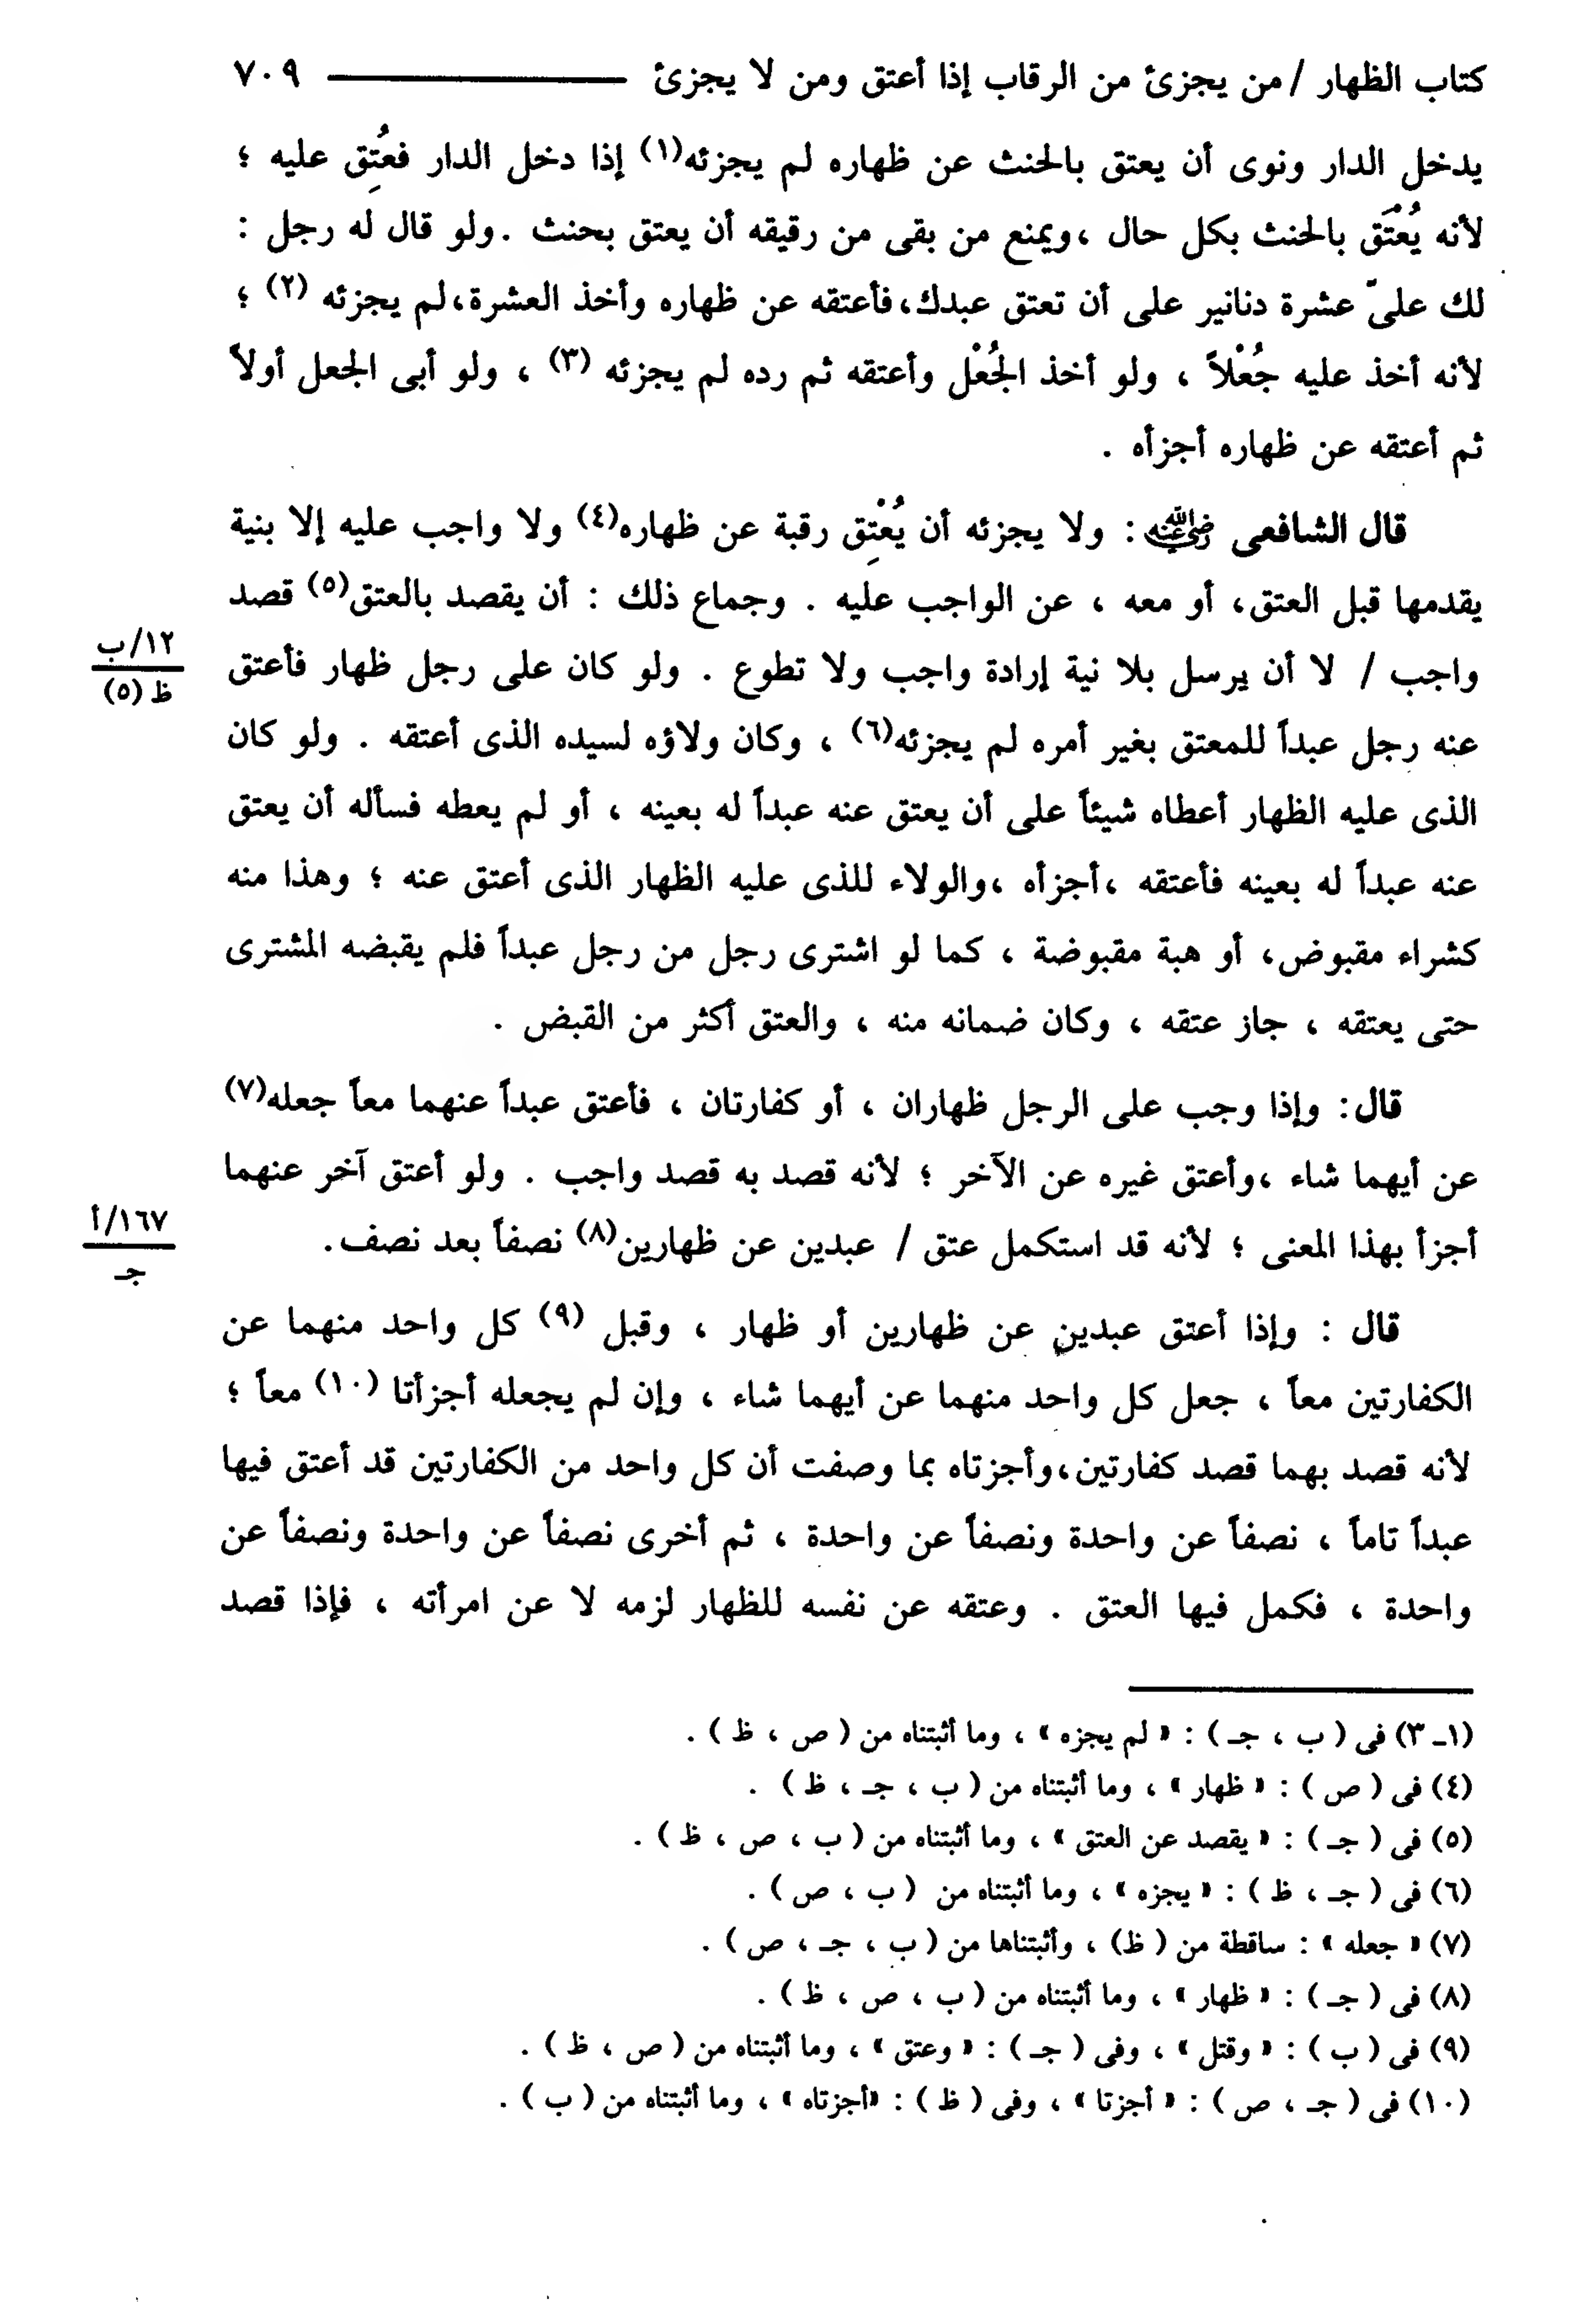 كتاب الظهار / من يجزئ من الرقاب إذا أعتق ومن لا يجزئ ــــــــــــ ٧٠٩
يدخل الدار ونوى أن يعتق بالحنث عن ظهاره لم يجزئه(١) إذا دخل الدار فعُتِق عليه ؛
لأنه يُعْتَق بالحنث بكل حال ، ويمنع من بقى من رقيقه أن يعتق بحنث . ولو قال له رجل :
لك علىّ عشرة دنانير على أن تعتق عبدك ، فأعتقه عن ظهاره وأخذ العشرة ، لم يجزئه (٢) ؛
لأنه أخذ عليه جُعْلاً ، ولو أخذ الجُعْل وأعتقه ثم رده لم يجزئه (٣) ، ولو أبى الجعل أولاً
ثم أعتقه عن ظهاره أجزأه .
قال الشافعى رضي الله عنه : ولا يجزئه أن يُعْتِق رقبة عن ظهاره(٤) ولا واجب عليه إلا بنية
يقدمها قبل العتق ، أو معه ، عن الواجب عليه . وجماع ذلك : أن يقصد بالعتق(٥) قصد
واجب / لا أن يرسل بلا نية إرادة واجب ولا تطوع . ولو كان على رجل ظهار فأعتق
١٢/ب
ظ (٥)
عنه رجل عبداً للمعتق بغير أمره لم يجزئه(٦) ، وكان ولاؤه لسيده الذى أعتقه . ولو كان
الذى عليه الظهار أعطاه شيئاً على أن يعتق عنه عبداً له بعينه ، أو لم يعطه فسأله أن يعتق
عنه عبداً له بعينه فأعتقه ، أجزأه ، والولاء للذى عليه الظهار الذى أعتق عنه ؛ وهذا منه
كشراء مقبوض ، أو هبة مقبوضة ، كما لو اشترى رجل من رجل عبداً فلم يقبضه المشترى
حتى يعتقه ، جاز عتقه ، وكان ضمانه منه ، والعتق أكثر من القبض .
قال : وإذا وجب على الرجل ظهاران ، أو كفارتان ، فأعتق عبداً عنهما معاً جعله(٧)
عن أيهما شاء ، وأعتق غيره عن الآخر ؛ لأنه قصد به قصد واجب . ولو أعتق آخر عنهما
أجزأ بهذا المعنى ؛ لأنه قد استكمل عتق / عبدين عن ظهارين(٨) نصفاً بعد نصف .
١٦٧/أ
جـ
قال : وإذا أعتق عبدين عن ظهارين أو ظهار ، وقبل (٩) كل واحد منهما عن
الكفارتين معاً ، جعل كل واحد منهما عن أيهما شاء ، وإن لم يجعله أجزأتا (١٠) معاً ؛
لأنه قصد بهما قصد كفارتين ، وأجزتاه بما وصفت أن كل واحد من الكفارتين قد أعتق فيها
عبداً تاماً ، نصفاً عن واحدة ونصفاً عن واحدة ، ثم أخرى نصفاً عن واحدة ونصفاً عن
واحدة ، فكمل فيها العتق . وعتقه عن نفسه للظهار لزمه لا عن امرأته ، فإذا قصد
(١ـ ٣) فى ( ب ، جـ ) : « لم يجزه » ، وما أثبتناه من ( ص ، ظ ) .
(٤) فى ( ص ) : « ظهار » ، وما أثبتناه من ( ب ، جـ ، ظ ) .
(٥) فى ( جـ ) : « يقصد عن العتق » ، وما أثبتناه من ( ب ، ص ، ظ ) .
(٦) فى ( جـ ، ظ ) : « يجزه » ، وما أثبتناه من ( ب ، ص ) .
(٧) « جعله » : ساقطة من ( ظ) ، وأثبتناها من ( ب ، جـ ، ص ) .
(٨) فى ( جـ ) : « ظهار » ، وما أثبتناه من ( ب ، ص ، ظ ) .
(٩) فى ( ب ) : « وقتل » ، وفى ( جـ ) : « وعتق » ، وما أثبتناه من ( ص ، ظ ) .
(١٠) فى ( جـ ، ص ) : « أجزتا » ، وفى ( ظ ) : «أجزتاه » ، وما أثبتناه من ( ب ) .